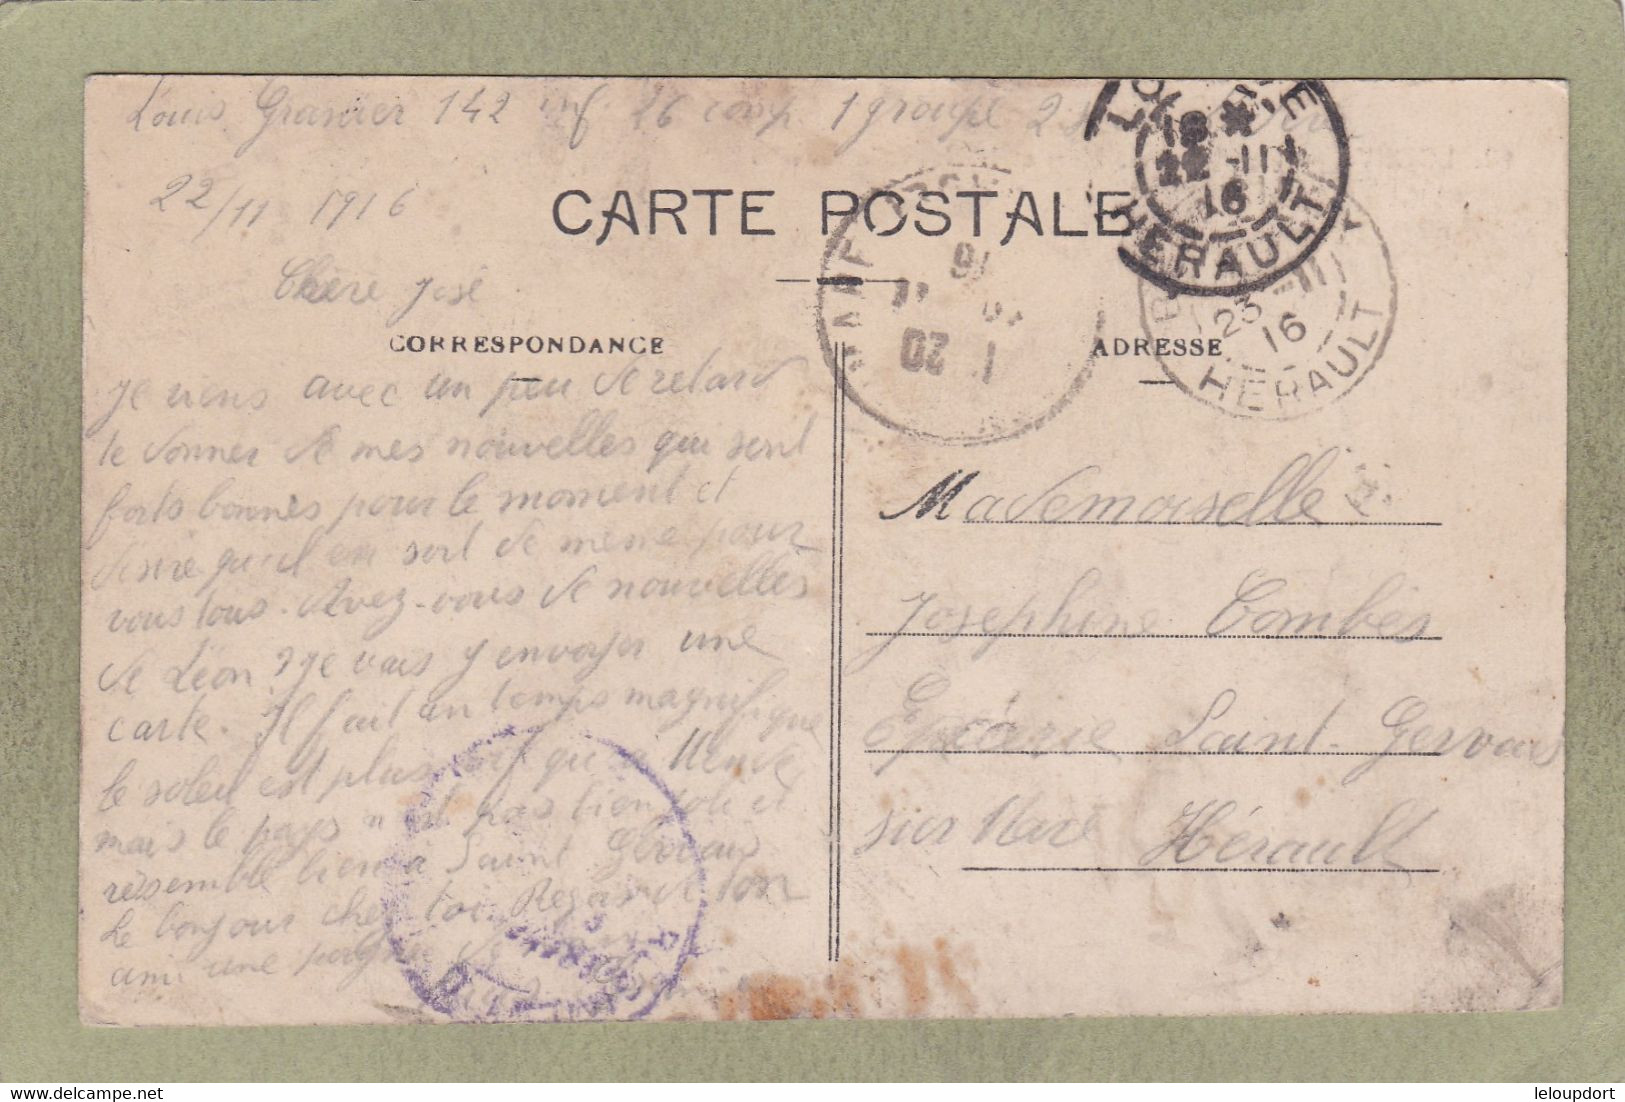 Louis Granier 142 inf 26 comp. 1 groupe
22/11 1916
CARTE POSTALE
Chère José
CORRESPONDANCE
ADRESSE
je viens avec un peu de retard
te donner de mes nouvelles qui sont
forts bonnes pour le moment et
desire qu'il en soit de meme pour
vous tous. Avez-vous de nouvelles
de Léon? je vais y envoyer une
carte. Il fait un temps magnifique
le soleil est plus vif qu'a
mais le pays n'est pas bien joli et
ressemble bien a Saint Gervais
Le bonjour chez toi. Reçois de ton
ami une poignée de
Mademoiselle
Josephine Combes
Epicerie Saint-Gervais
sur Mare Hérault
18 *
22 -11
16
HERAULT
23 -11
16
HERAULT
20 11
16
www.delcampe.net
leloupdort